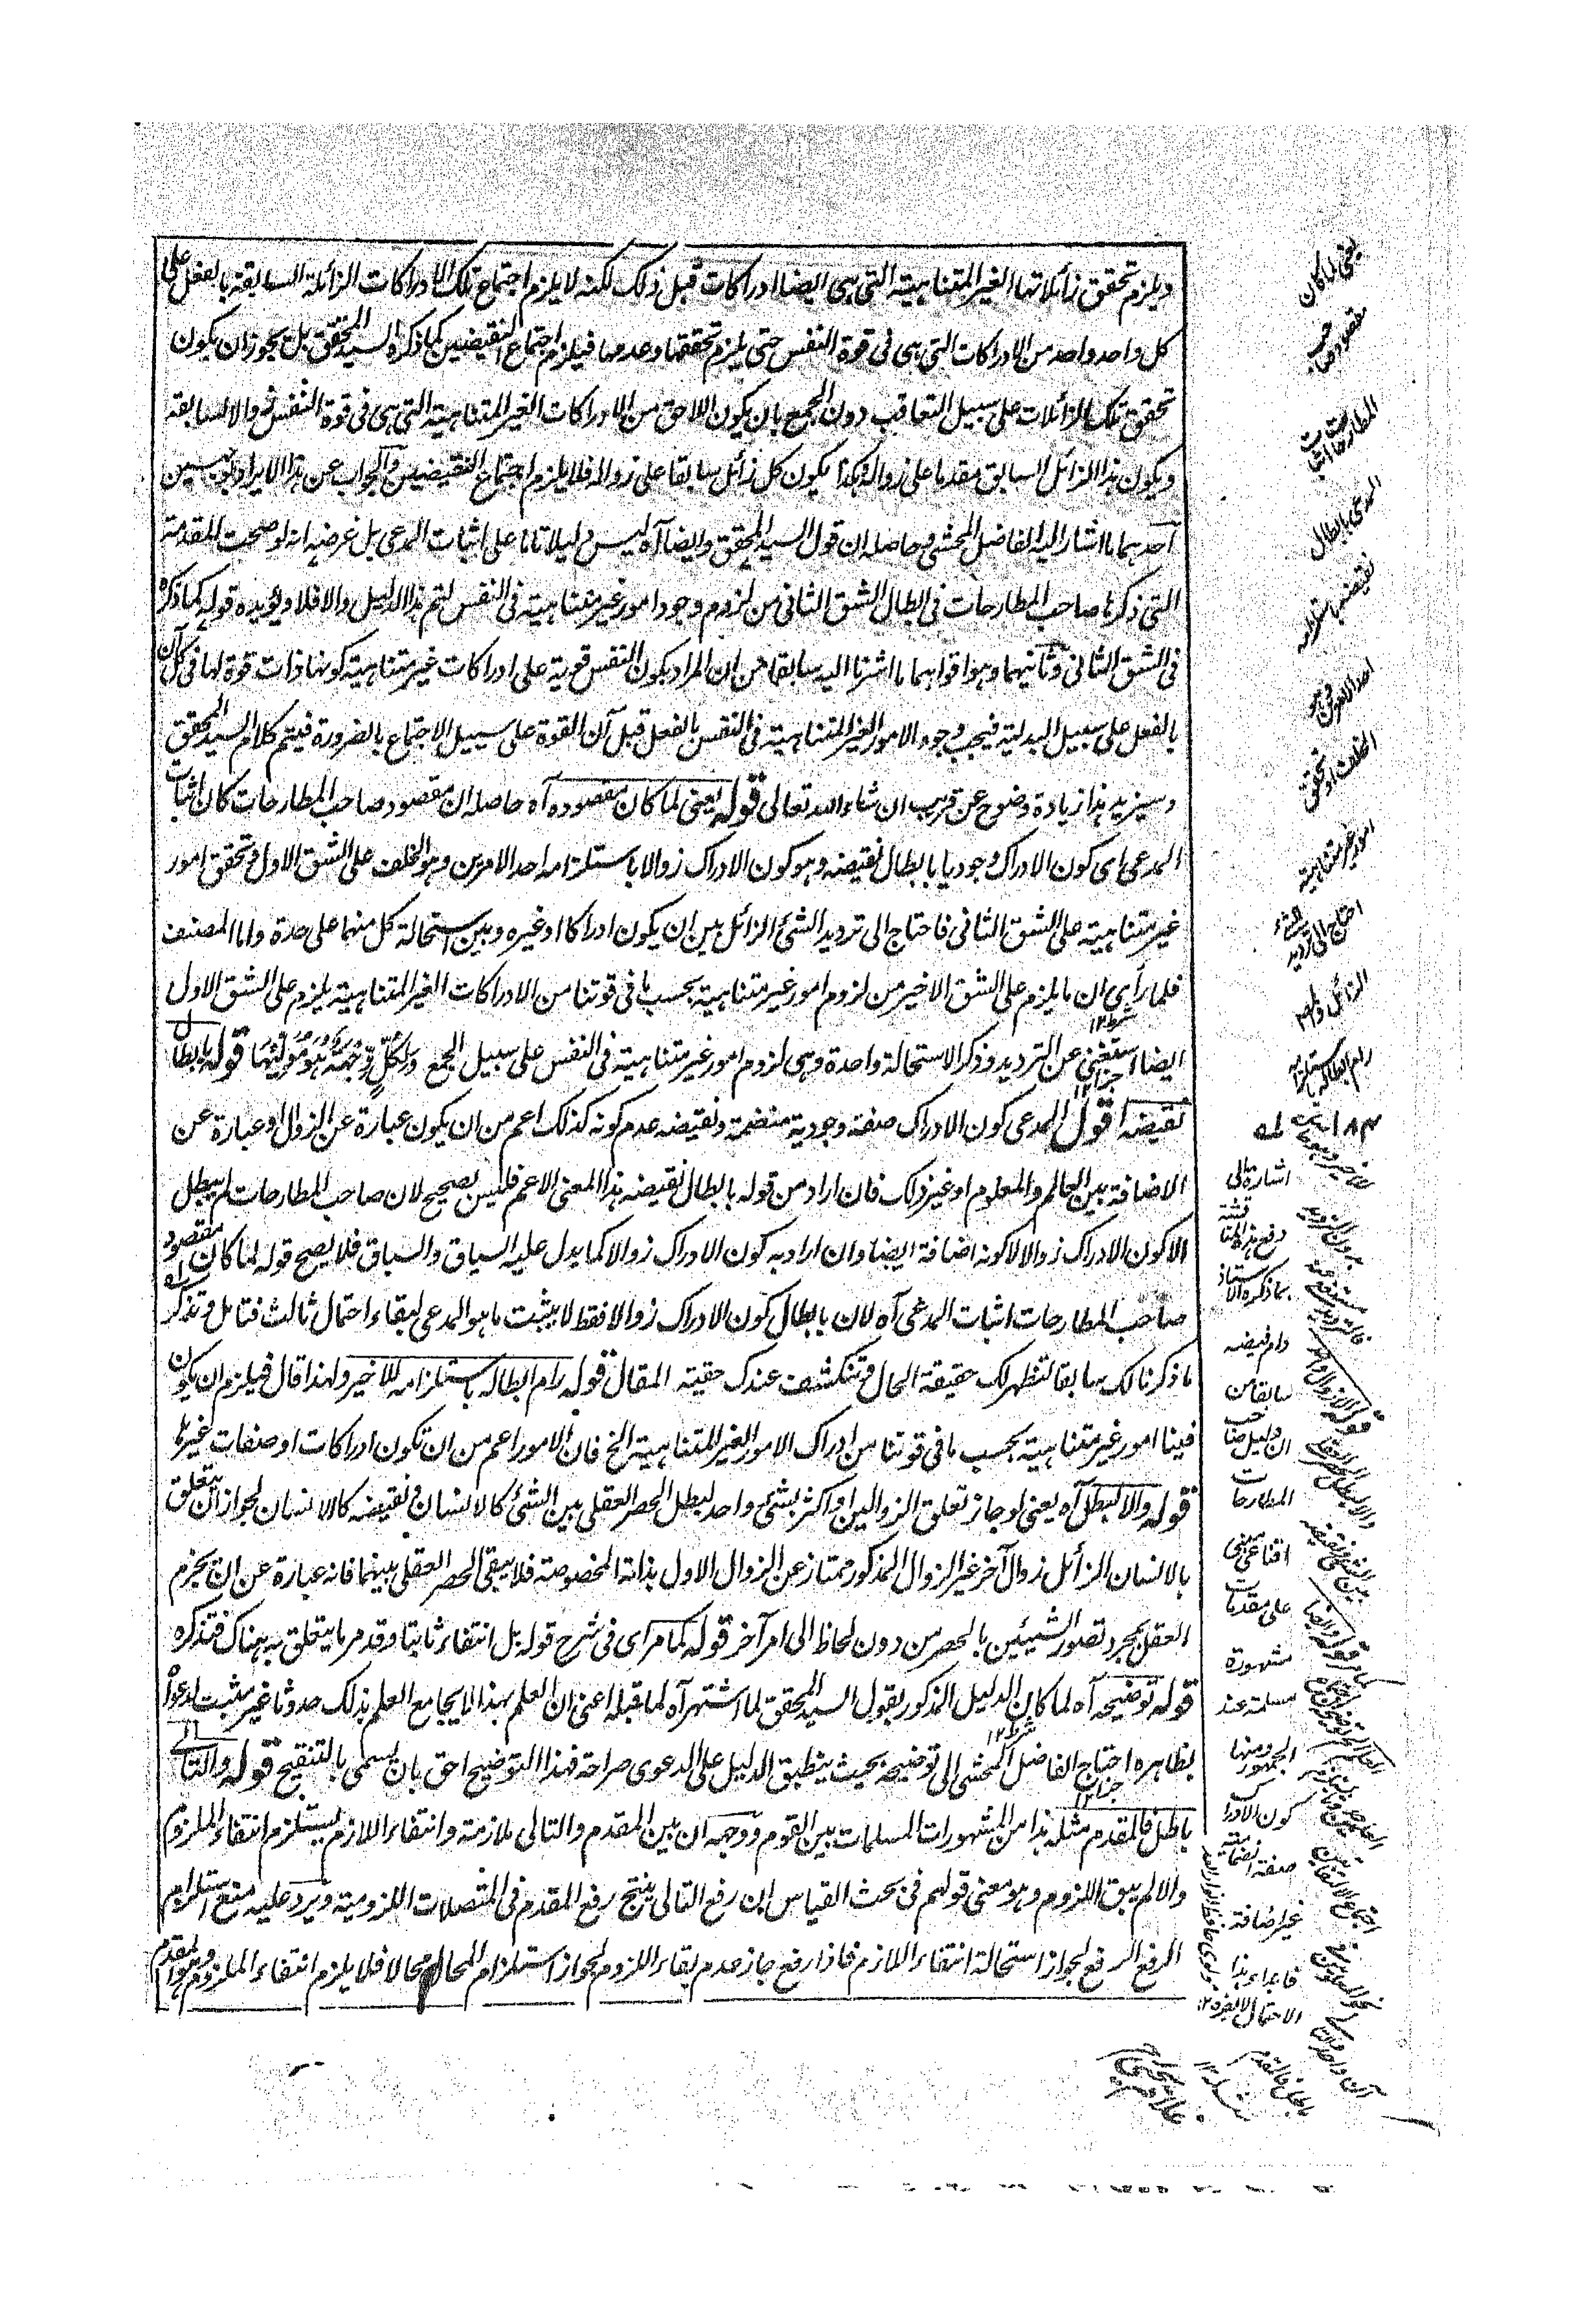 ويلزم تحقق زائلاتها الغير المتناهية التي هي ايضا ادراكات قبل ذلك لكنه لا يلزم اجتماع تلك الادراكات الزائلة السابقة بالفعل على
كل واحد واحد من الادراكات التي هي في قوة النفس حتى يلزم تحققها وعدمها فيلزم اجتماع النقيضين كما ذكره السيد المحقق بل يجوز ان يكون
تحقق تلك الزائلات على سبيل التعاقب دون الجمع بان يكون اللاحق من الادراكات الغير المتناهية التي هي في قوة النفس زوالا لسابقه
ويكون هذا الزائل السابق مقدما على زواله وهكذا يكون كل زائل سابقا على زواله فلا يلزم اجتماع النقيضين والجواب عن هذا الايراد بوجهين
احدهما ما اشار اليه الفاضل المحشي وحاصله ان قول السيد المحقق وايضا آه ليس دليلا تاما على اثبات المدعى بل غرضه انه لو صحت المقدمة
التي ذكرها صاحب المطارحات في ابطال الشق الثاني من لزوم وجود امور غير متناهية في النفس لتم هذا الدليل والا فلا ويؤيده قوله كما ذكره
في الشق الثاني وثانيهما وهو اقواهما ما اشرنا اليه سابقا من ان المراد بكون النفس قوية على ادراكات غير متناهية كونها ذات قوة لها في كل آن
بالفعل على سبيل البدلية فيجب وجود الامور الغير المتناهية في النفس بالفعل قبل آن القوة على سبيل الاجتماع بالضرورة فيتم كلام السيد المحقق
وسنزيد هذا زيادة وضوح عن قريب ان شاء الله تعالى قوله يعني لما كان مقصوده آه حاصله ان مقصود صاحب المطارحات كان اثبات
المدعى اي كون الادراك وجوديا بابطال نقيضه وهو كون الادراك زوالا باستلزامه احد الامرين وهو الخلف على الشق الاول وتحقق امور
غير متناهية على الشق الثاني فاحتاج الى ترديد الشئ الزائل بين ان يكون ادراكا او غيره وبين استحالة كل منهما على حدة واما المصنف
فلما رأى ان ما يلزم على الشق الاخير من لزوم امور غير متناهية بحسب ما في قوتنا من الادراكات الغير المتناهية يلزم على الشق الاول
ايضا استغنى عن الترديد وذكر الاستحالة واحدة وهي لزوم امور غير متناهية في النفس على سبيل الجمع ولكل وجهة هو موليها قوله بابطال
نقيضه اقول المدعى كون الادراك صفة وجودية منضمة ونقيضه عدم كونه كذلك اعم من ان يكون عبارة عن الزوال او عبارة عن
الاضافة بين العالم والمعلوم او غير ذلك فان اراد من قوله بابطال نقيضه هذا المعنى الاعم فليس بصحيح لان صاحب المطارحات لم يبطل
الا كون الادراك زوالا لا كونه اضافة ايضا وان اراد به كون الادراك زوالا كما يدل عليه السياق والسباق فلا يصح قوله لما كان مقصود
صاحب المطارحات اثبات المدعى آه لان بابطال كون الادراك زوالا فقط لا يثبت ما هو المدعى لبقاء احتمال ثالث فتامل وتذكر
ما ذكرنا لك سابقا لتظهر لك حقيقة الحال وتنكشف عندك حقية المقال قوله رام ابطاله باستلزامه للاخير ولهذا قال فيلزم ان يكون
فينا امور غير متناهية بحسب ما في قوتنا من ادراك الامور الغير المتناهية الخ فان الامور اعم من ان تكون ادراكات او صفات غيرها
قوله والا لبطل آه يعني لو جاز تعلق الزوالين او اكثر بشئ واحد لبطل الحصر العقلي بين الشئ كالانسان ونقيضه كاللاانسان لجواز ان يتعلق
بالانسان الزائل زوال آخر غير الزوال المذكور ممتاز عن الزوال الاول بذاته المخصوصة فلا يبقى الحصر العقلي بينهما فانه عبارة عن ان يجزم
العقل بمجرد تصور الشيئين بالحصر من دون لحاظ الى امر آخر قوله كما مر اى في شرح قوله بل انتفاء ثابتا وقد مر ما يتعلق به هناك فتذكره
قوله توضيحه آه لما كان الدليل المذكور بقول السيد المحقق لما اشتهر آه لما قبله اعني ان العلم بهذا لا يجامع العلم بذلك حدوثا غير مثبت لدعواه
بظاهره احتاج الفاضل المحشي الى توضيحه بحيث ينطبق الدليل على الدعوى صراحة فهذا التوضيح احق بان يسمى بالتنقيح قوله والتالي
باطل فالمقدم مثله هذا من المشهورات المسلمات بين القوم ووجهه ان بين المقدم والتالي ملازمة وانتفاء اللازم يستلزم انتفاء الملزوم
والا لم يبق اللزوم وهو معنى قولهم في بحث القياس ان رفع التالي ينتج رفع المقدم في المتصلات اللزومية ويرد عليه منع استلزام
الرفع الرفع لجواز استحالة انتفاء اللازم فاذا رفع جاز عدم بقاء اللزوم لجواز استلزام المحال محالا فلا يلزم انتفاء الملزوم وهو المقدم
يعني لما كان
مقصود صاحب
المطارحات اثبات
المدعى بابطال
نقيضه باستلزامه
احد الامرين وهو
الخلف او تحقق
امور غير متناهية
احتاج الى ترديد الشئ
الزائل
رام ابطاله باستلزامه
اشارة الى
دفع هذه المناقشة
بما ذكره الاستاذ
دام فيضه
سابقا من
ان دليل صاحب
المطارحات
اقناعي مبني
على مقدمات
مشهورة
مسلمة عند
الجمهور ومنها
كون الادراك
صفة انضمامية
غير اضافة
فابداء هذا
الاحتمال لا يضره ١٢